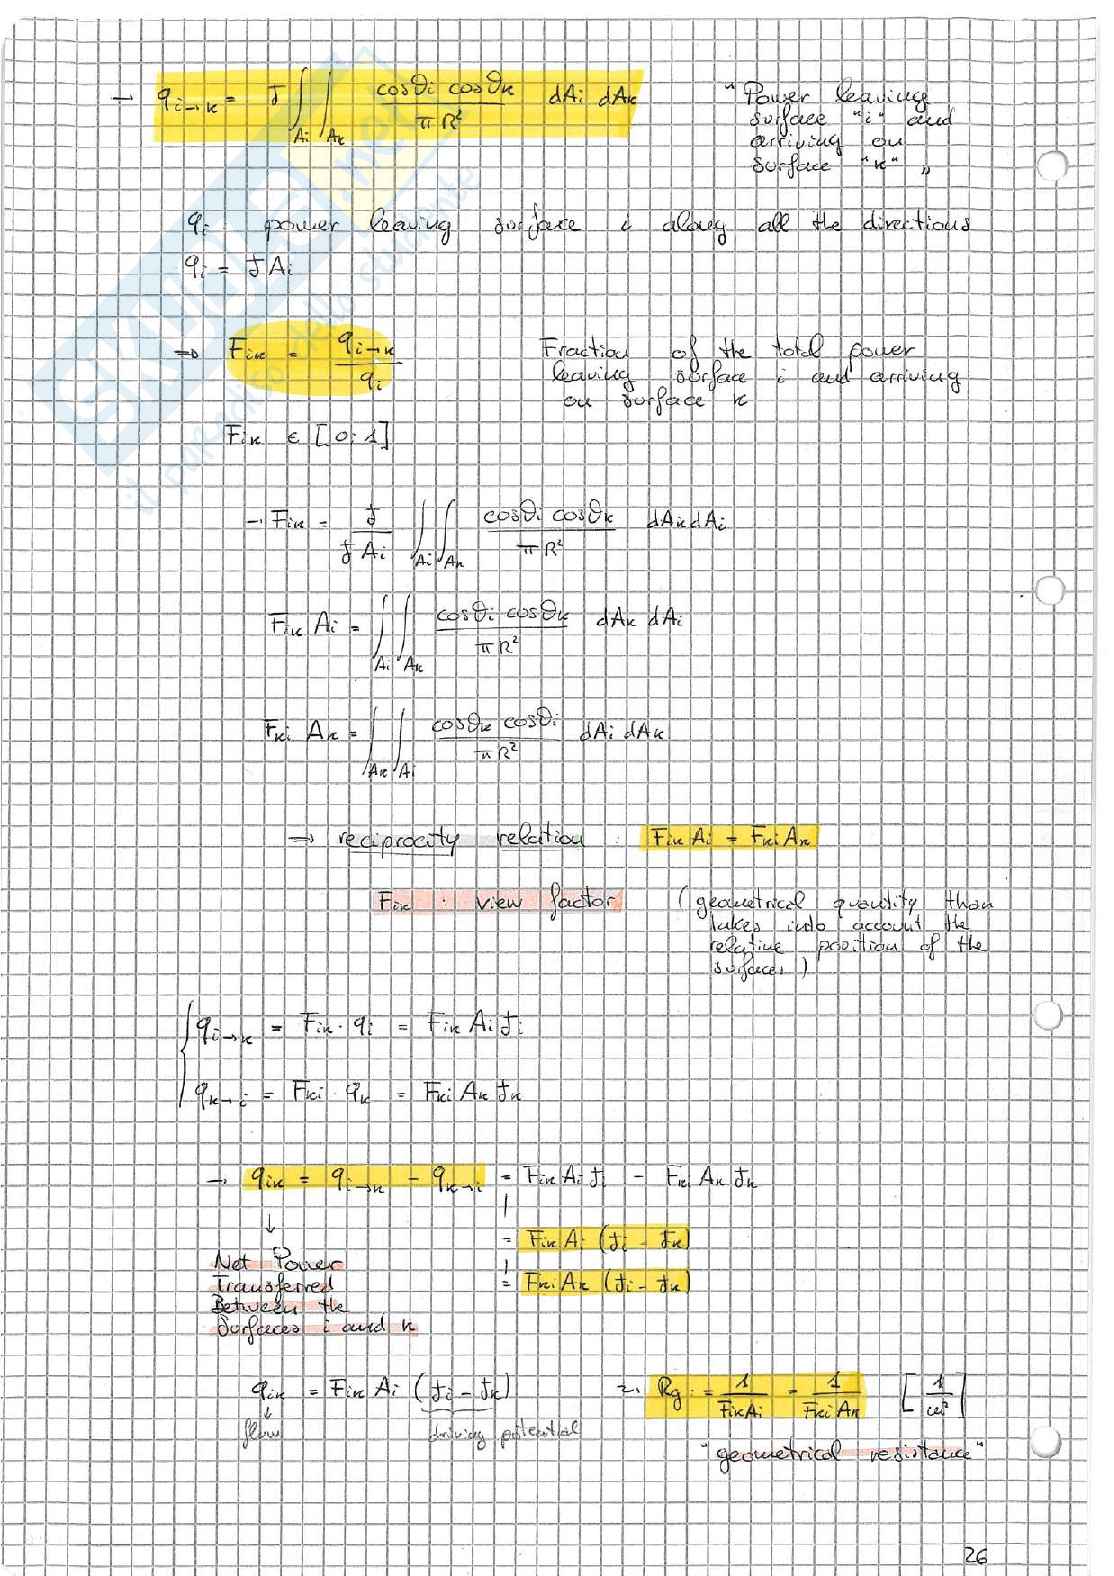 → q_{i→k} = J ∫_{Ai} ∫_{Ak} \frac{cosϑi cosϑk}{π R²} dAi dAk
"Power leaving
surface "i" and
arriving on
surface "k" "
q_i power leaving surface i along all the directions
q_i = J Ai
→ F_{ik} = \frac{q_{i→k}}{q_i}
Fraction of the total power
leaving surface i and arriving
on surface k
F_{ik} ∈ [0; 1]
→ F_{ik} = \frac{J}{J Ai} ∫_{Ai} ∫_{Ak} \frac{cosϑi cosϑk}{π R²} dAk dAi
F_{ik} Ai = ∫_{Ai} ∫_{Ak} \frac{cosϑi cosϑk}{π R²} dAk dAi
F_{ki} Ak = ∫_{Ak} ∫_{Ai} \frac{cosϑk cosϑi}{π R²} dAi dAk
→ reciprocity relation : F_{ik} Ai = F_{ki} Ak
F_{ik} : view factor (geometrical quantity than
takes into account the
relative position of the
surfaces)
q_{i→k} = F_{ik} · q_i = F_{ik} Ai Ji
q_{k→i} = F_{ki} · q_k = F_{ki} Ak Jk
→ q_{ik} = q_{i→k} - q_{k→i} = F_{ik} Ai Ji - F_{ki} Ak Jk
= F_{ik} Ai (Ji - Jk)
= F_{ki} Ak (Ji - Jk)
↓
Net Power
Transferred
Between the
Surfaces i and k
q_{ik} = F_{ik} Ai (Ji - Jk)
↓
flow
driving potential
Rg = \frac{1}{F_{ik} Ai} = \frac{1}{F_{ki} Ak} [\frac{1}{m²}]
"geometrical resistance"
26